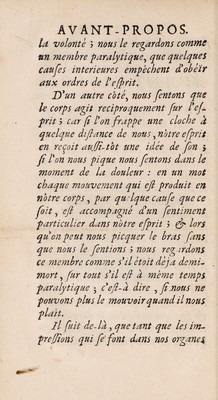 AVANT-PROPOS.
la volonté ; nous le regardons comme
un membre paralytique, que quelques
causes interieures empêchent d'obéïr
aux ordres de l'esprit.
D'un autre côté, nous sentons que
le corps agit reciproquement sur l'es-
prit ; car si l'on frappe une cloche à
quelque distance de nous, nôtre esprit
en reçoit aussi-tôt une idée de son ;
si l'on nous pique nous sentons dans le
moment de la douleur : en un mot
chaque mouvement qui est produit en
nôtre corps, par quelque cause que ce
soit, est accompagné d'un sentiment
particulier dans nôtre esprit ; & lors
qu'on peut nous picquer le bras sans
que nous le sentions ; nous regardons
ce membre comme s'il étoit déja demi-
mort, sur tout s'il est à même temps
paralytique ; c'est-à dire, si nous ne
pouvons plus le mouvoir quand il nous
plait.
Il suit de-là, que tant que les im-
pressions qui se font dans nos organes